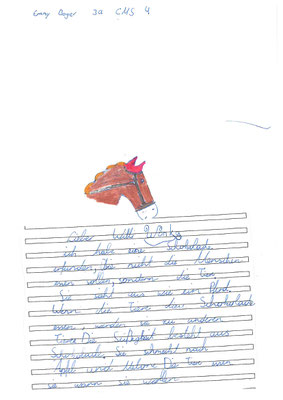 Emmy 3a CMS 4
Lieber Willi Wonka
ich habe eine Schokolade
erfunden, die nicht die Menschen
essen sondern die Tiere.
Sie sieht aus wie ein Pferd.
Wenn die Tiere die Schokolade
essen, werden sie zu anderen
Tiere. Die Süßigkeit besteht aus
Schokolade. Sie schmeckt nach
Apfel und Melone. Die Tiere essen
sie wann sie wollen.